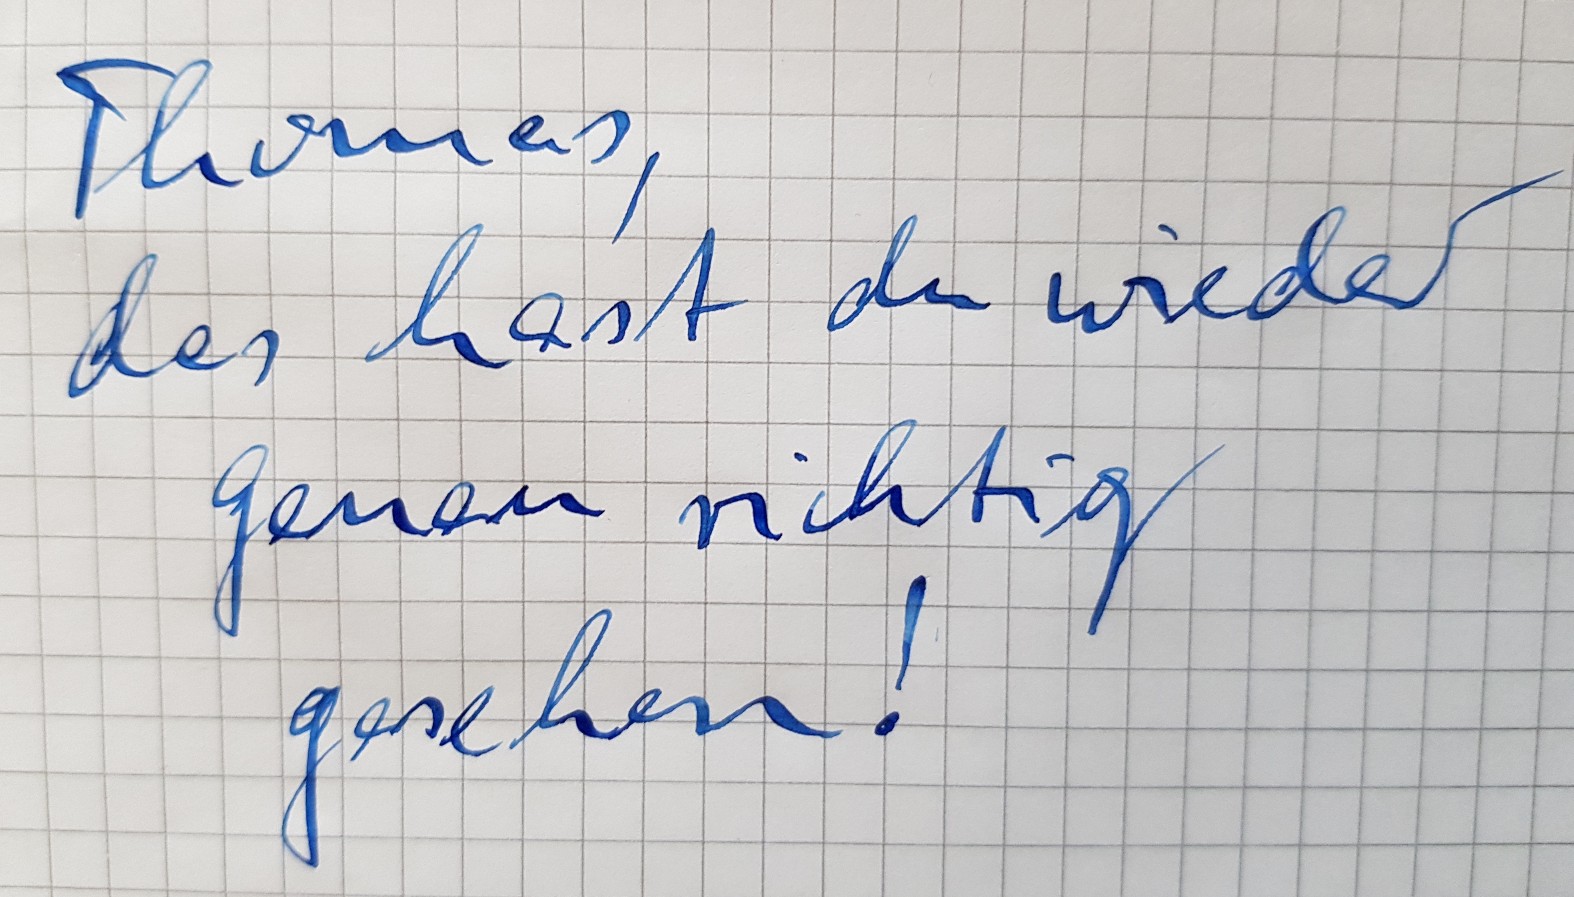 Thomas,
das hast du wieder
genau richtig
gesehen!